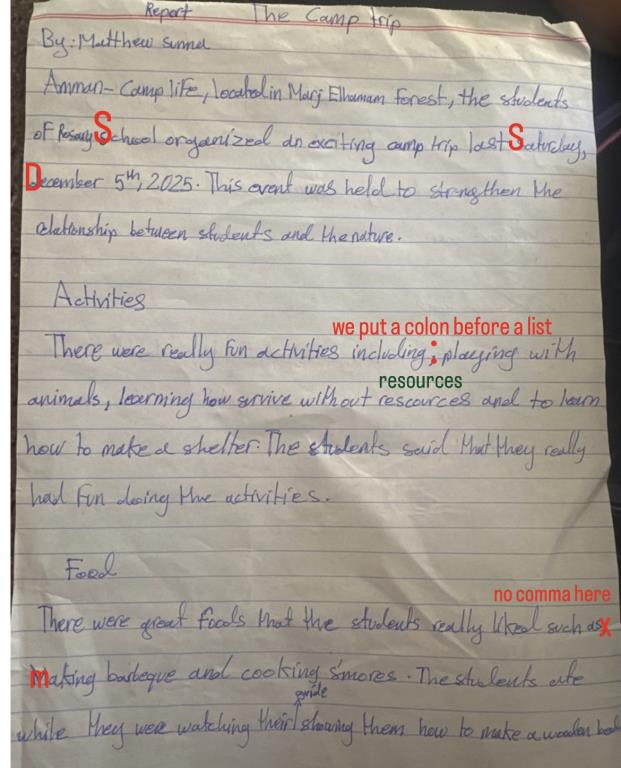 Report The Camp trip
By: Matthew
Amman- Camp life, located in Marj Elhamam forest, the students
of Rosary School organized an exciting camp trip last Saturday,
December 5th, 2025. This event was held to strengthen the
relationship between students and the nature.
Activities
we put a colon before a list
There were really fun activities including: playing with
resources
animals, learning how survive without rescources and to learn
how to make a shelter. The students said that they really
had fun doing the activities.
Food
no comma here
There were great foods that the students really liked such as x
making barbeque and cooking s'mores. The students ate
guide
while they were watching their showing them how to make a wooden